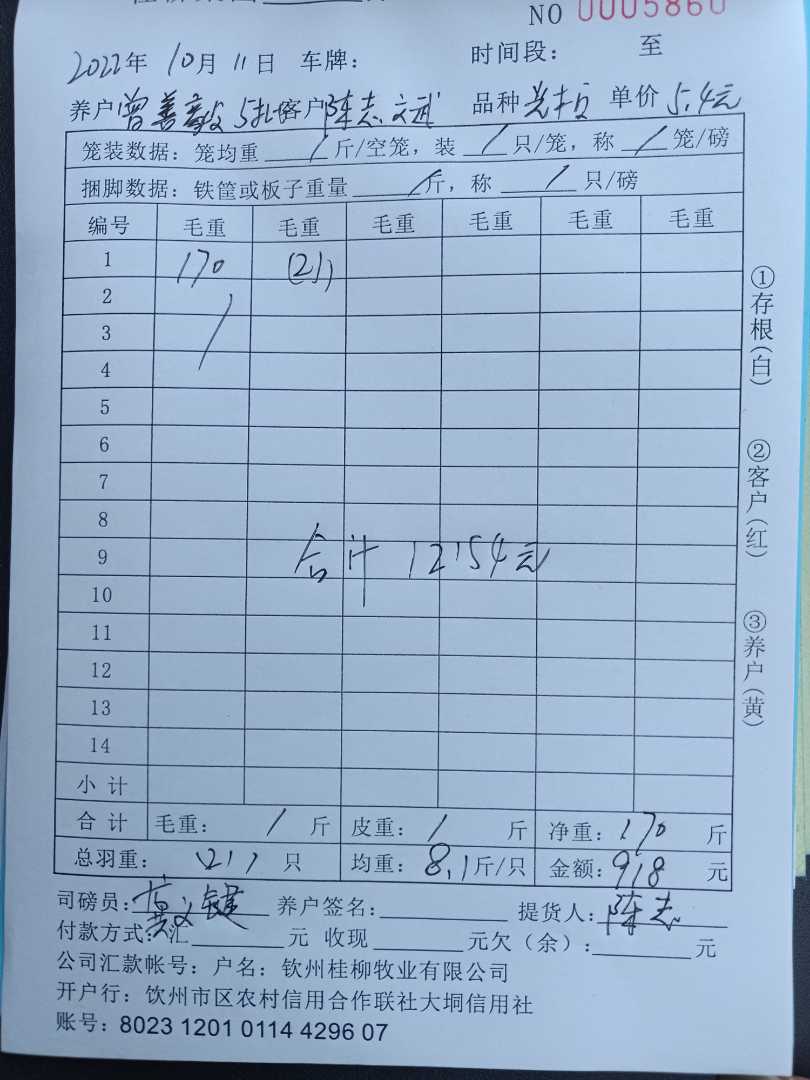 NO 0005860
2022年 10月 11日 车牌： 时间段： 至
养户 曾善 5扎 客户 陈志文武 品种 单价 5.4元
笼装数据：笼均重 / 斤/空笼，装 / 只/笼，称 / 笼/磅
捆脚数据：铁筐或板子重量 / 斤，称 / 只/磅
编号 毛重 毛重 毛重 毛重 毛重 毛重
1 170 (21)
2 /
3
4
5
6
7
8
9
合计 12154元
10
11
12
13
14
小计
合计 毛重： / 斤 皮重： / 斤 净重： 170 斤
总羽重： (21) 只 均重： 8.1 斤/只 金额： 918 元
司磅员： 键 养户签名： 提货人： 陈志
付款方式：汇 元 收现 元欠（余）： 元
公司汇款帐号：户名：钦州桂柳牧业有限公司
开户行：钦州市区农村信用合作联社大垌信用社
账号：8023 1201 0114 4296 07
①存根（白） ②客户（红） ③养户（黄）